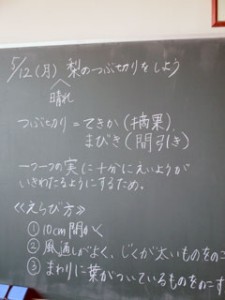 5/12(月) 梨のつぶ切りをしよう
晴れ
つぶ切り=てきか(摘果)
まびき(間引き)
一つ一つの実に十分にえいようが
いきわたるようにするため。
≪えらび方≫
① 10cm間かく
② 風通しがよく、じくが太いものをのこ
③ まわりに葉がついているものをのこす